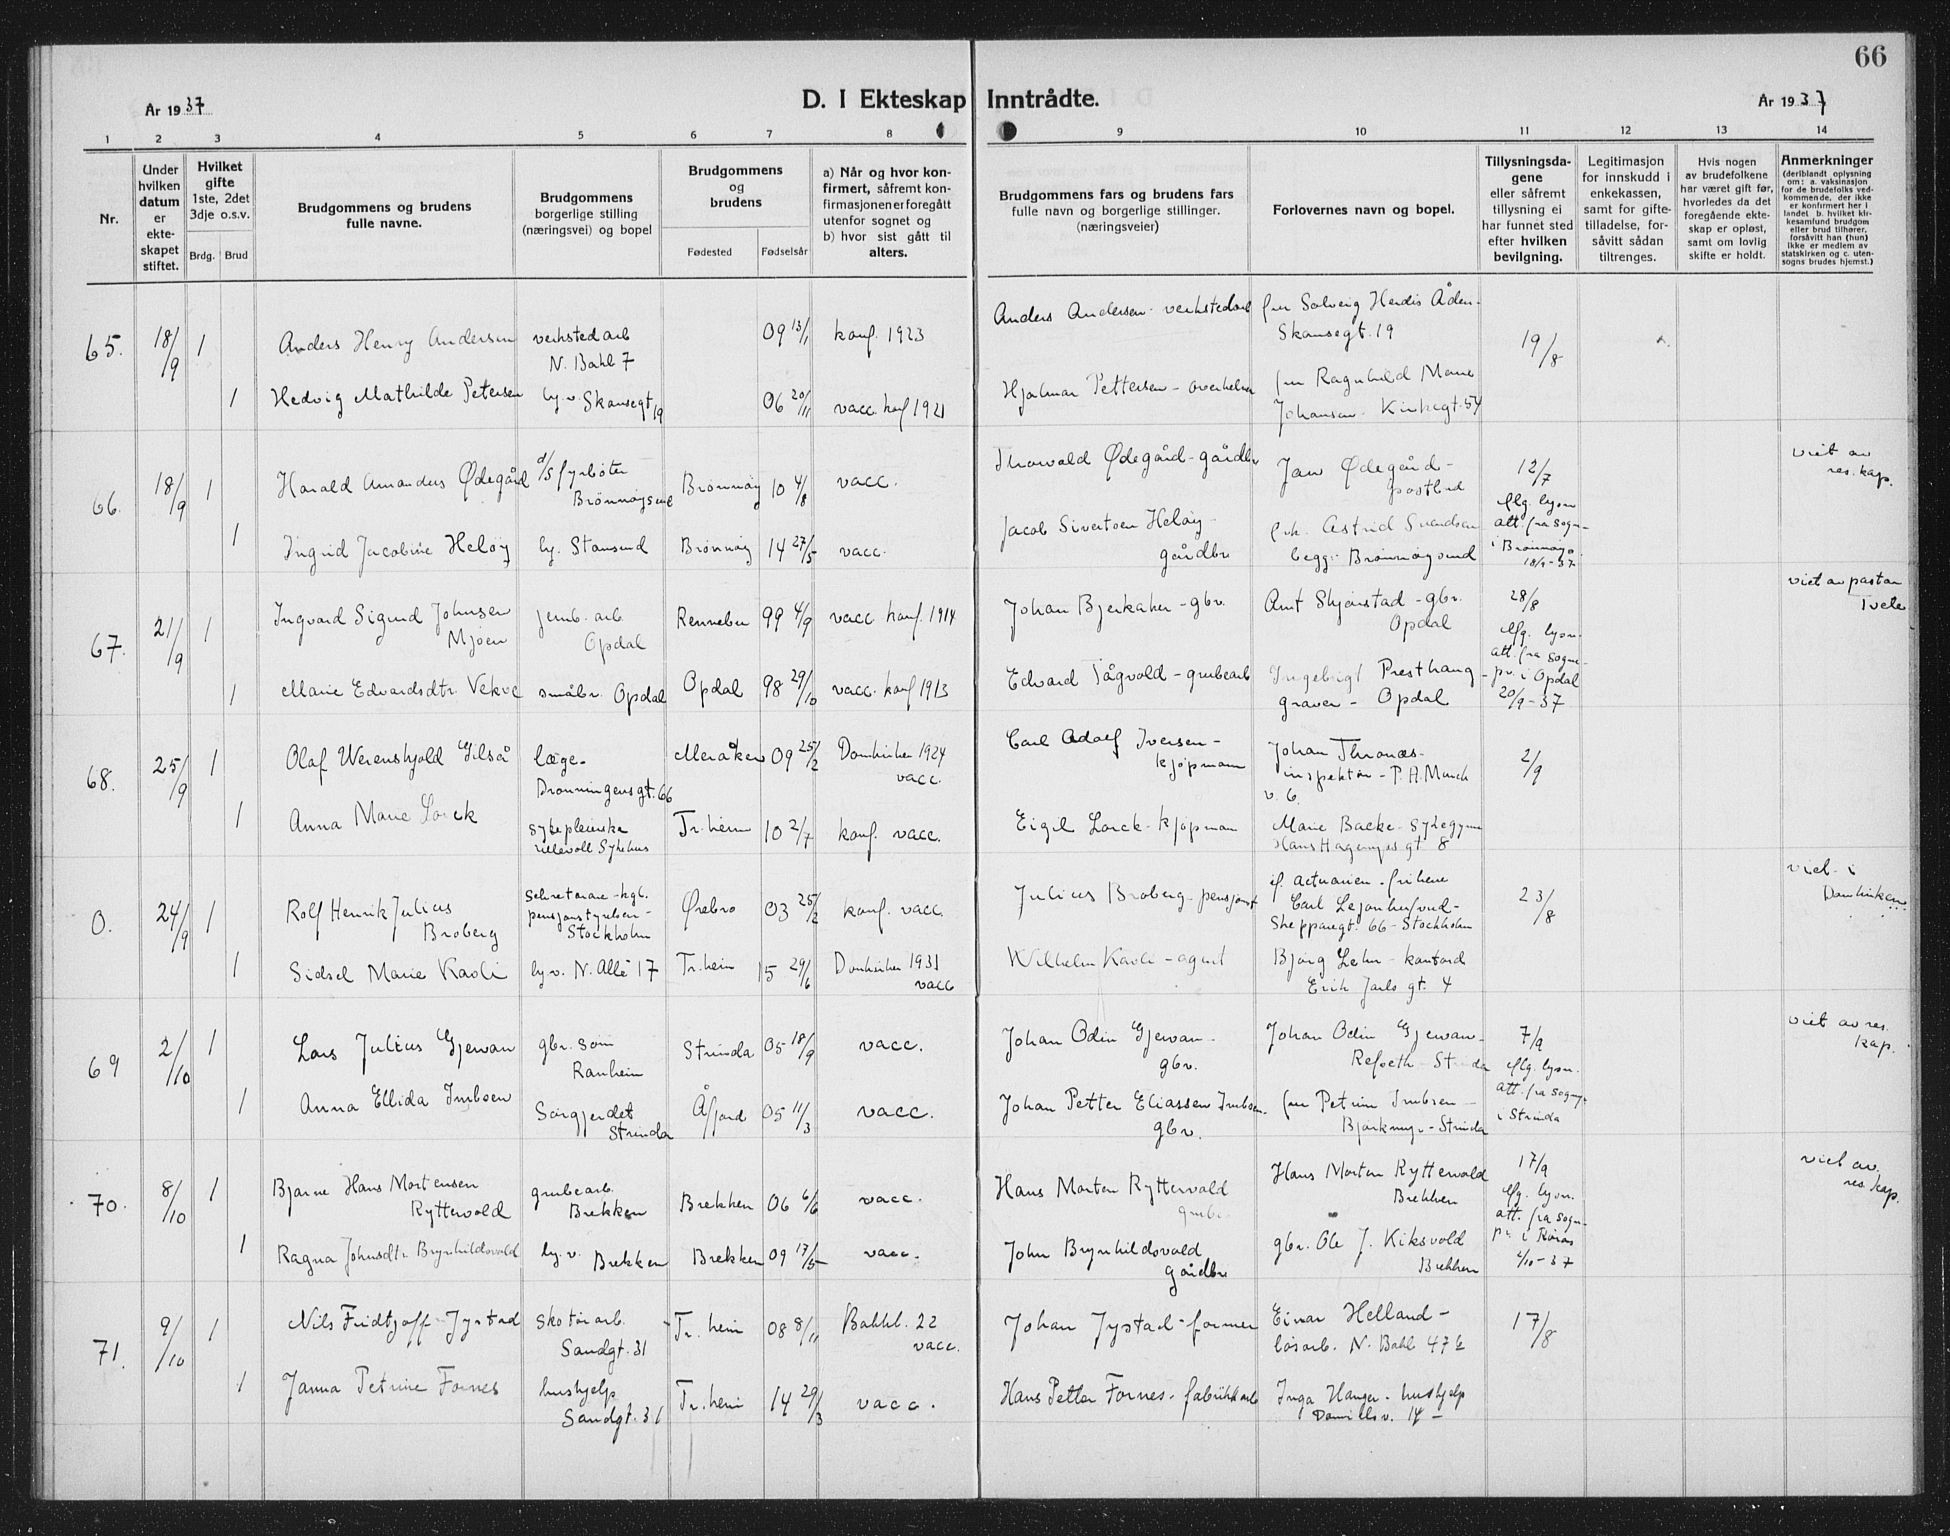 66
År 1937
D. I Ekteskap Inntrådte.
År 1937
1 2 3 4 5 6 7 8 9 10 11 12 13 14
Nr.
Under
hvilken
datum
er
ekte-
skapet
stiftet.
Hvilket
gifte
1ste, 2det
3dje o.s.v.
Brdg. Brud
Brudgommens og brudens
fulle navne.
Brudgommens
borgerlige stilling
(næringsvei) og bopel
Brudgommens
og
brudens
Fødested Fødselsår
a) Når og hvor kon-
firmert, såfremt kon-
firmasjonen er foregått
utenfor sognet og
b) hvor sist gått til
alters.
Brudgommens fars og brudens fars
fulle navn og borgerlige stillinger.
(næringsveier)
Forlovernes navn og bopel.
Tillysningsda-
gene
eller såfremt
tillysning ei
har funnet sted
efter hvilken
bevilgning.
Legitimasjon
for innskudd i
enkekassen,
samt for gifte-
tilladelse, for-
såvitt sådan
tiltrenges.
Hvis nogen
av brudefolkene
har været gift før,
hvorledes da det
foregående ekte-
skap er opløst,
samt om lovlig
skifte er holdt.
Anmerkninger
(deriblandt oplysning
om: a. vaksinasjon
for de brudefolks ved-
kommende, der ikke
er konfirmert her i
landet b. hvilket kir-
kesamfund brudgom
eller brud tilhører,
forsåvitt han (hun)
ikke er medlem av
statskirken og c. uten-
sogns brudes hjemst.)
65. 18/9 1 Anders Henry Andersen
verkstedarb
N. Bakl 7
09 13/1 konf. 1923
Anders Andersen - verkstedarb
fru Solveig Herdis Åden-
Skansegt. 19
19/8
1 Hedvig Mathilde Petersen
hj. v. Skansegt 19
06 20/11 vacc. konf 1921
Hjalmar Pettersen
fru Ragnhild Marie
Johansen - Kirkegt. 54
66. 18/9 1 Harald Amandus Ødegård
d/s fyrbøter
Brønnøysund
Brønnøy 10 4/8 vacc.
Thorvald Ødegård - gårdbr
Jan Ødegård -
postbud
12/7
iflg. lysn
att. fra sogn-
i Brønnøy
18/9-37
viet av
res. kap.
1 Ingrid Jacobine Heløy
hj. Stonsund
Brønnøy 14 27/5 vacc.
Jacob Sivertsen Heløy -
gårdbr
frk. Astrid Svendsen
begge Brønnøysund
67. 21/9 1 Ingvard Sigurd Johnsen
Mjøen
jernb. arb.
Opdal
Rennebu 99 4/9 vacc konf. 1914
Johan Bjerkaker - gbr.
Arnt Skjørstad - gbr.
Opdal
28/8
iflg. lysn.
att. fra sogne-
pr. i Opdal
20/9-37
viet av pastor
Tvete
1 Marie Edvardsdtr Vekve
småbr. Opdal
Opdal 98 29/10 vacc. konf 1913
Edvard Tågvold - grubearb
Ingebrigt Presthaug -
graver - Opdal
68. 25/9 1 Olaf Werenskjold Gilså
læge -
Dronningensgt. 66
Meråker 09 25/2 Domkirken 1924
vacc.
Carl Adolf Iversen -
kjøpmann
Johan Thronæs -
inspektør - P. A. Munch
v. 6.
2/9
1 Anna Marie Lorck
sykepleierske
Ullevoll Sykehus
Tr. heim 10 2/7 konf. vacc.
Eigil Lorck - kjøpman
Marie Backe - sykegymn
Hans Hagerups gt 8
0. 24/9 1 Rolf Henrik Julius
Broberg
Sekreterare - kgl.
pensjonstyrelsen -
Stockholm
Ørebro 03 25/2 konf. vacc.
Julius Broberg - pensjonist
f. actuarien - friherre
Carl Lejonhufvud -
Skepparegt. 66 - Stockholm
23/8
viet i
Domkirken
1 Sidsel Marie Kavli
hj. v. N. Allé 17
Tr. heim 15 29/6 Domkirken 1931
vacc
Wilhelm Kavli - agent
Bjørg Lehn - kontord
Erik Jarls gt. 4
69 2/10 1 Lars Julius Gjervan
gbr. sønn
Ranheim
Strinda 05 18/9 vacc.
Johan Odin Gjervan -
gbr.
Johan Odin Gjervan -
Refseth - Strinda
7/9
iflg. lysn.
att. fra sogn.
i Strinda
viet av res.
kap.
1 Anna Ellida Imbsen
Sorgjerdet
Strinda
Åfjord 05 11/3 vacc.
Johan Petter Eliassen Imbsen.
gbr.
fru Petrine Imbsen -
Bjørkmyr - Strinda
70. 8/10 1 Bjarne Hans Mortensen
Ryttervold
grubearb.
Brekken
Brekken 06 6/6 vacc.
Hans Morten Ryttervold
Hans Morten Ryttervold
Brekken
17/9
iflg. lysn.
att. fra sogn-
pr. i Røros
4/10-37
viet av
res. kap.
1 Ragna Johnsdtr. Brynhildsvold
hj. v. Brekken
Brekken 09 17/5 vacc.
John Brynhildsvold
Gårdbr
gbr. Ole J. Kiksvold
Brekken
71. 9/10 1 Nils Fridtjoff Jystad
skotøiarb.
Sandgt. 31
Tr. heim 08 8/11 Bakkl. 22
vacc.
Johan Jystad - former
Einar Helland -
løsarb. N. Bakl 47 b
17/8
1 Janna Petrine Fornes
hushjelp
Sandgt. 31
Tr. heim 14 29/3 vacc.
Hans Petter Fornes - fabrikkarb
Inga Hanger - hushjelp
Damillsv. 14 -